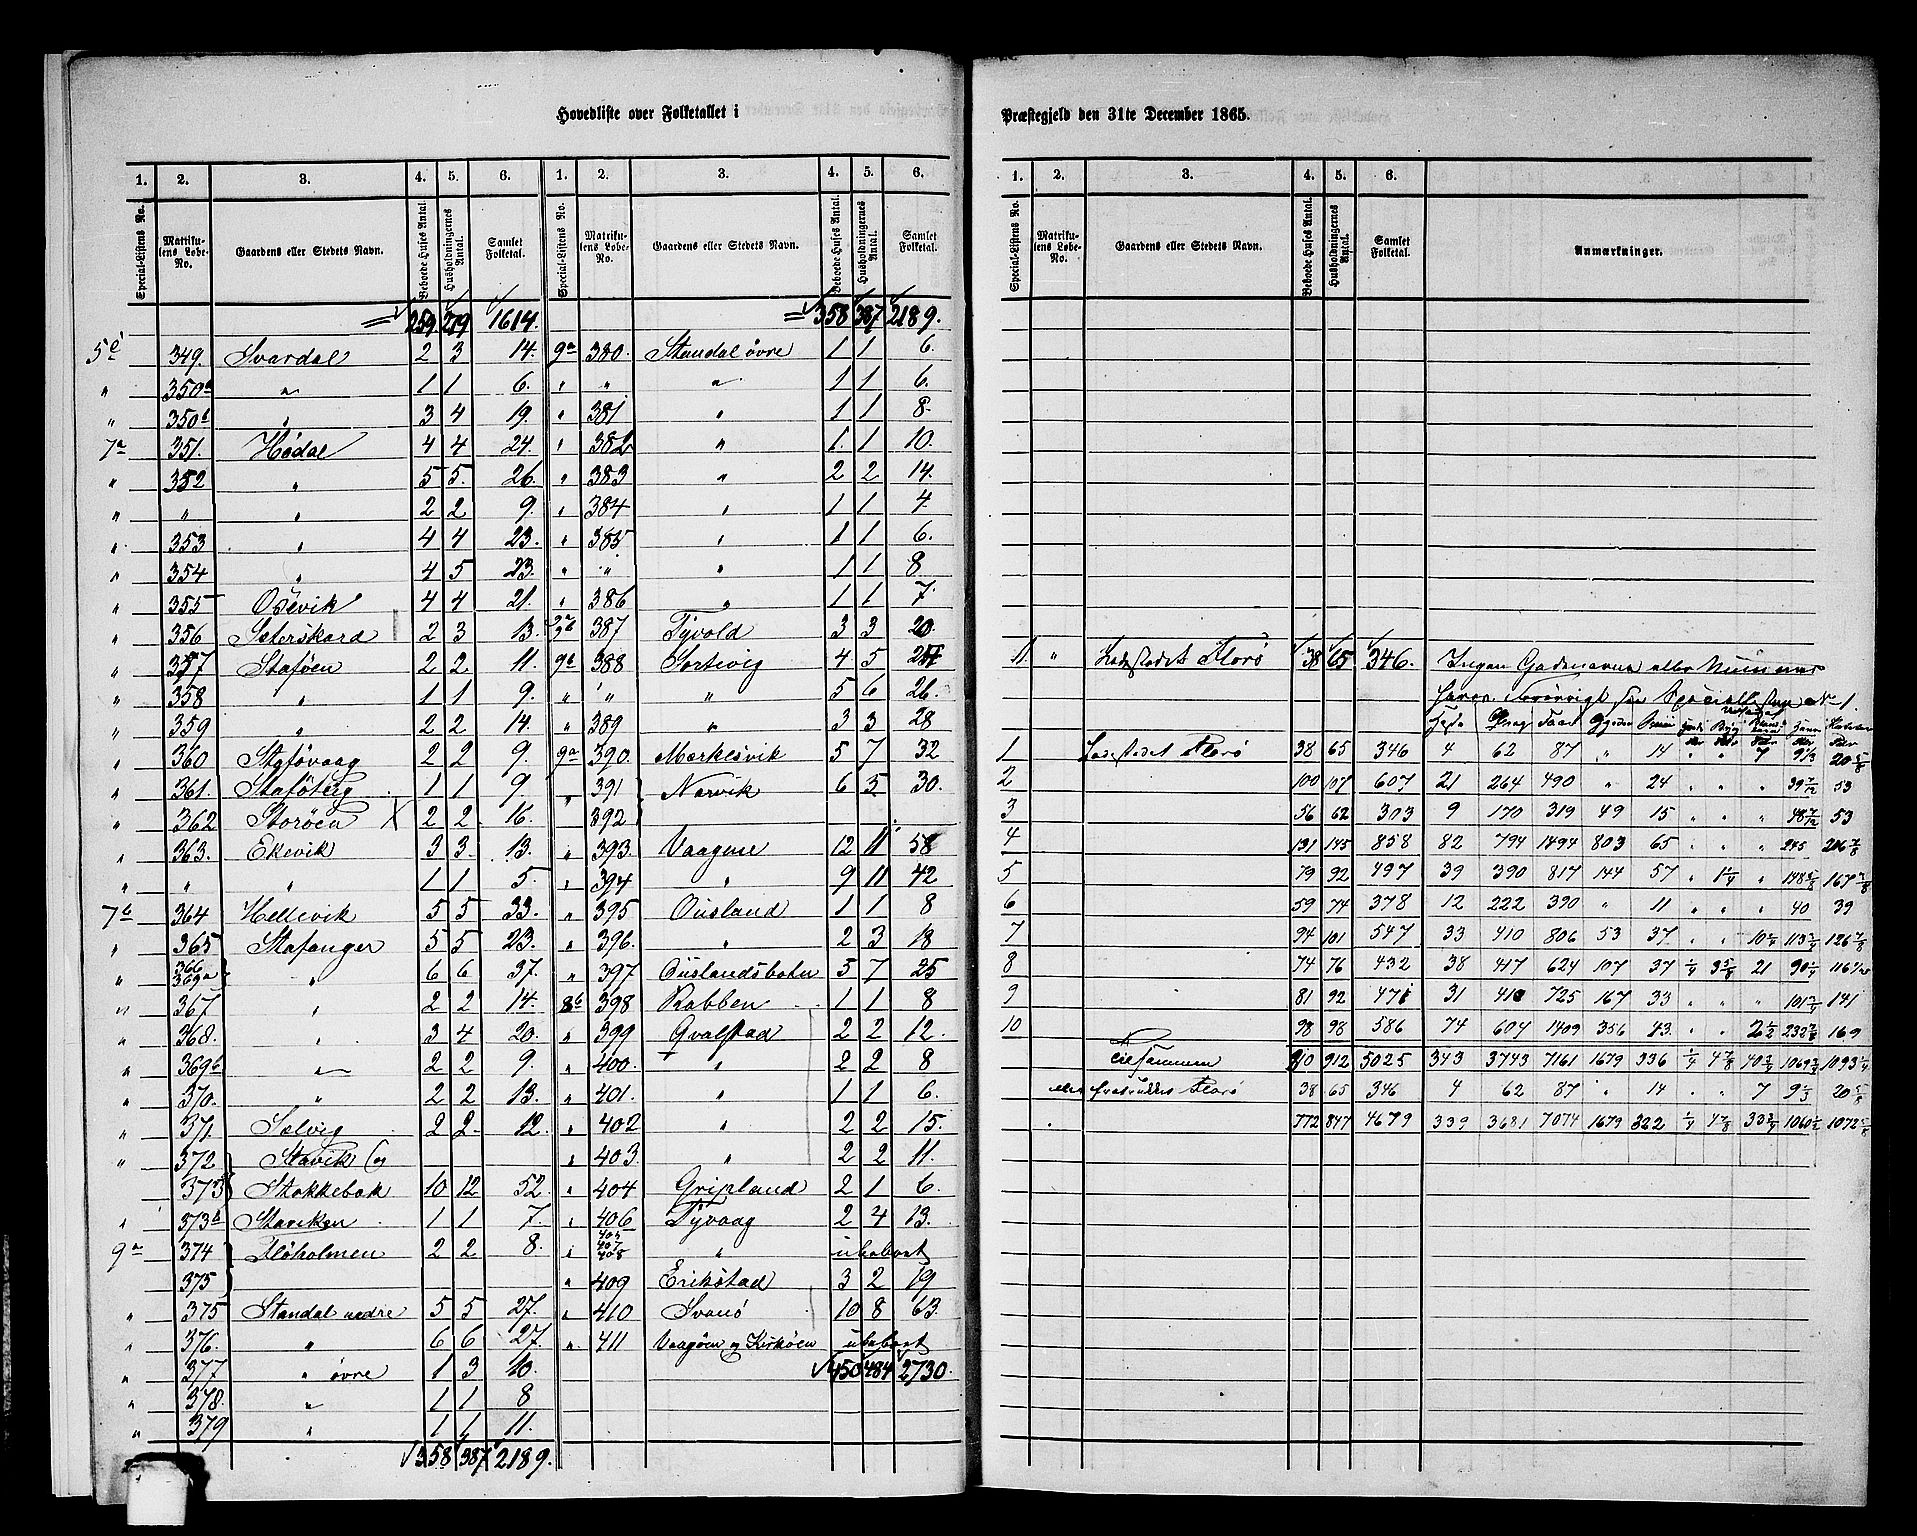 Hovedliste over Folketallet i
1. 2. 3. 4. 5. 6. 1. 2. 3. 4. 5. 6.
Special-Listens No. Matriku-lens Løbe-No. Gaardens eller Stedets Navn. Beboede Huses Antal. Husholdningernes Antal. Samlet Folketal. Special-Listens No. Matriku-lens Løbe-No. Gaardens eller Stedets Navn. Beboede Huses Antal. Husholdningernes Antal. Samlet Folketal.
259 279 1614. 358 387 2189.
5e 349. Svardal 2 3 14. 9a 380. Standal øvre 1 1 6.
" 350a " 1 1 6. " " " 1 1 6.
" 350b " 3 4 19. " 381 " 1 1 8.
7a 351. Hødal 4 4 24. " 382 " 1 1 10.
" 352 " 5 5. 26. " 383 " 2 2 14.
" " " 2 2 9. " 384 " 1 1 4.
" 353 " 4 4 23. " 385 " 1 1 6.
" 354 " 4 5 23. " " " 1 1 8.
" 355 Osevik 4 4 21. " 386 " 1 1 7.
" 356 Seterskard 2 3 13. 387 Tyvold 3 3 20.
" 357 Staføen 2 2 11. 9a 388 Sortevig 4 5
" 358 " 1 1 9. " " " 5 6 26.
" 359 " 2 2 14. " 389 " 3 3 28
" 360 Støføvaag 2 2 9. 9a 390. Mærkesvik 5 7 32
" 361. Staføteig 1 1 9. " 391 Norvik 6 5 30.
" 362 Storøen X 2 2. 16. 392
" 363. Ekevik 3 3 13. " 393. Vaagene 12 11 58
" " " 1 1 5. " 394 " 9 11 42
7b 364 Hellevik 5 5 33. " 395 Ousland 1 1 8
" 365 Stafanger 5 5 23. " 396. " 2 3 18
" 366 369a " 6 6 37. " 397 Ouslandsbotn 5 7 25
" 367 " 2 2 14. 8b 398 Rabben 1 1 8
" 368. " 3 4 20. " 399 Gvalstad 2 2 12.
" 369b " 2 2 9. " 400. " 2 2 8
" 370. " 2 2 13. " 401. " 1 1 6.
" 371. Solvig 2 2. 12. " 402 " 2 2 15.
" 372 Stavik (og " 403. " 2 2 11.
373 Stokkebak 10 12 52. " 404 Gripland 2 1 6.
" 373b Staviken 1 1 7. " 406 Tyvaag 2 4 13.
9a 374 Fløholmen 2 2 8. " 405 407 408 " ubeboet
375 " 409 Erikstad 3 2 19
" 375 Standal nedre 5 5 27. " 410 Svanø 10 8 63.
" 376. " 6 6 27. " 411 Vaagøen og Kirkøen ubeboet
" 377 " øvre 1 3 10. 450 484 2730.
" 378. " 1 1 8
" 379 " 1 1 11.
358 387 2189.
Præstegjeld den 31te December 1865.
1. 2. 3. 4. 5. 6.
Special-Listens No. Matriku-lens Løbe-No. Gaardens eller Stedets Navn. Beboede Huses Antal. Husholdningernes Antal. Samlet Folketal. Anmærkninger.
11. " Ladestedet Florø 38 65 346. Ingen Gadenavne eller Nummer
haves
1 Ladestedet Florø 38 65 346 4 62 87 " 14 " " 7 9 1/3 20 5/8
2 100 107 607 21 264 490 " 24 " " " 39 7/12 53
3 56 62 303 9 170 319 49 15 " " " 48 7/12 53
4 131 145 858 82 794 1494 803 65 " " " 245
5 79 92 497 39 390 817 144 57 " 1 1/4 "
6 59 74 378 12 222 390 " 11 " " " 40 39
7 94 101 547 33 410 806 53 37 " "
8 74 76 432 38 417 624 107 37 1/4 3 5/8 21 90 1/4
9 81 92 471 31 410 725 167 33 " " " 141
10 98 98 586 74 604 1409 356 43 " " 2 1/2 169
Tilsammen 810 912 5025 343 3743 7161 1679 336 1/4 4 7/8 1093 1/4
Florø 38 65 346 4 62 87 " 14 " " 7 9 1/3 20 5/8
772 847 4679 339 3681 7074 1679 322 1/4 4 7/8 1072 5/8